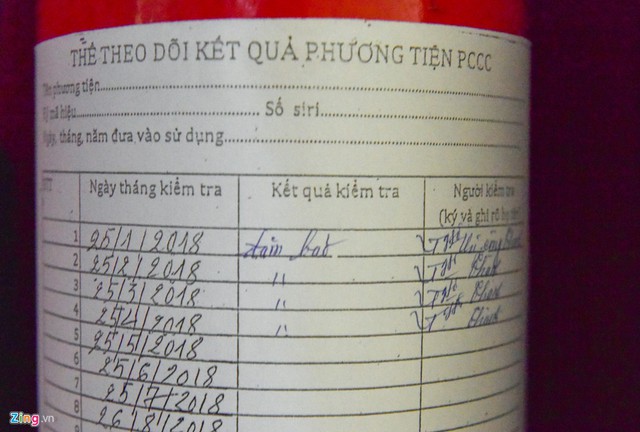 THẺ THEO DÕI KẾT QUẢ PHƯƠNG TIỆN PCCC
Tên phương tiện
Ký mã hiệu Số siri
Ngày, tháng, năm đưa vào sử dụng
STT Ngày tháng kiểm tra Kết quả kiểm tra Người kiểm tra
(ký và ghi rõ họ tên)
1 25/1/2018 đảm bảo
2 25/2/2018 "
3 25/3/2018 "
4 25/4/2018 "
5 25/5/2018
6 25/6/2018
7 25/7/2018
8 26/8/2018
9
Zing.vn